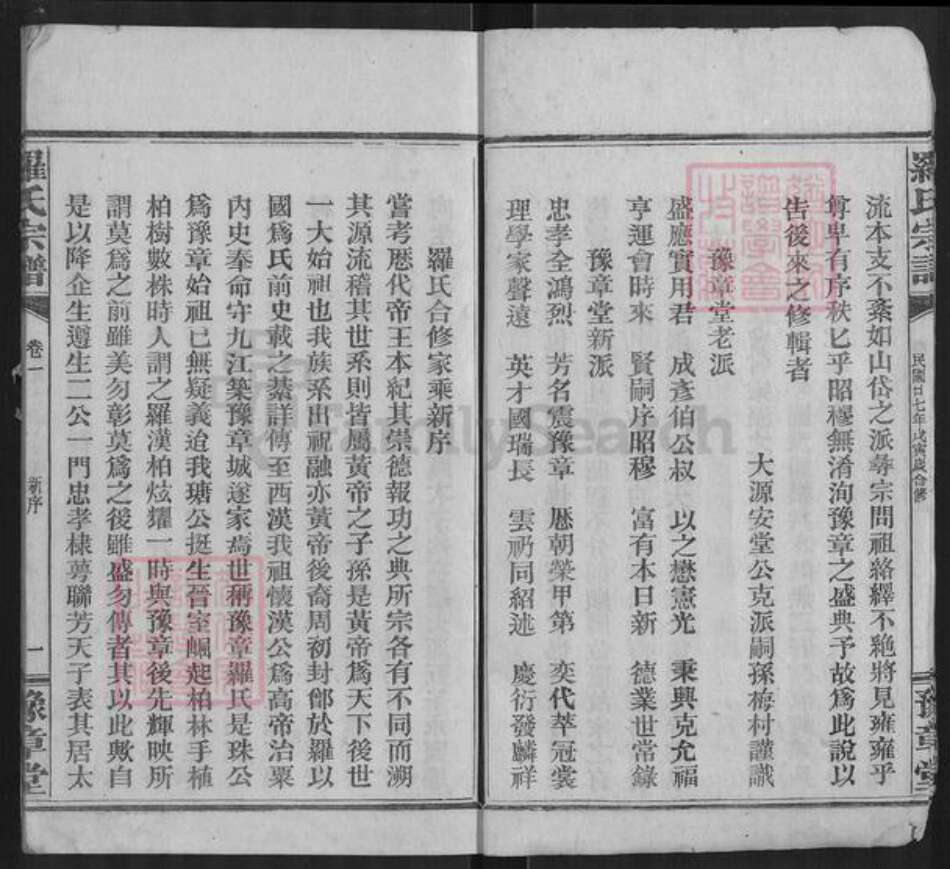 羅氏宗譜
民國廿七年戊寅歲合修
豫章堂
流本支不紊如山岱之派彝宗問祖絡繹不絶將見雍雍乎
尊卑有序秩匕乎昭穆無淆洵豫章之盛典予故爲此說以
告後來之修輯者
大源安堂公克派嗣孫梅村謹識
豫章堂老派
盛應實用君 成彥伯公叔 以之懋憲光 秉興克允福
亨運會時來 賢嗣序昭穆 富有本日新 德業世常錄
豫章堂新派
忠孝全鴻烈 芳名震豫章 歷朝榮甲第 奕代萃冠裳
理學家聲遠 英才國瑞長 雲礽同紹述 慶衍發麟祥
羅氏合修家乘新序
嘗考歷代帝王本紀其崇德報功之典所宗各有不同而溯
其源流稽其世系則皆屬黃帝之子孫是黃帝爲天下後世
一大始祖也我族系出祝融亦黃帝後裔周初封鄶於羅以
國爲氏前史載之綦詳傳至西漢我祖懷漢公爲高帝治粟
內史奉命守九江築豫章城遂家焉世稱豫章羅氏是珠公
爲豫章始祖已無疑義迨我瑭公挺生晉室崛起柏林手植
柏樹數株時人謂之羅漢柏炫耀一時與豫章後先輝映所
謂莫爲之前雖美勿彰莫爲之後雖盛勿傳者其以此歟自
是以降企生遵生二公一門忠孝棣萼聯芳天子表其居太
羅氏宗譜
卷一
新序
一
豫章堂
FamilySearch